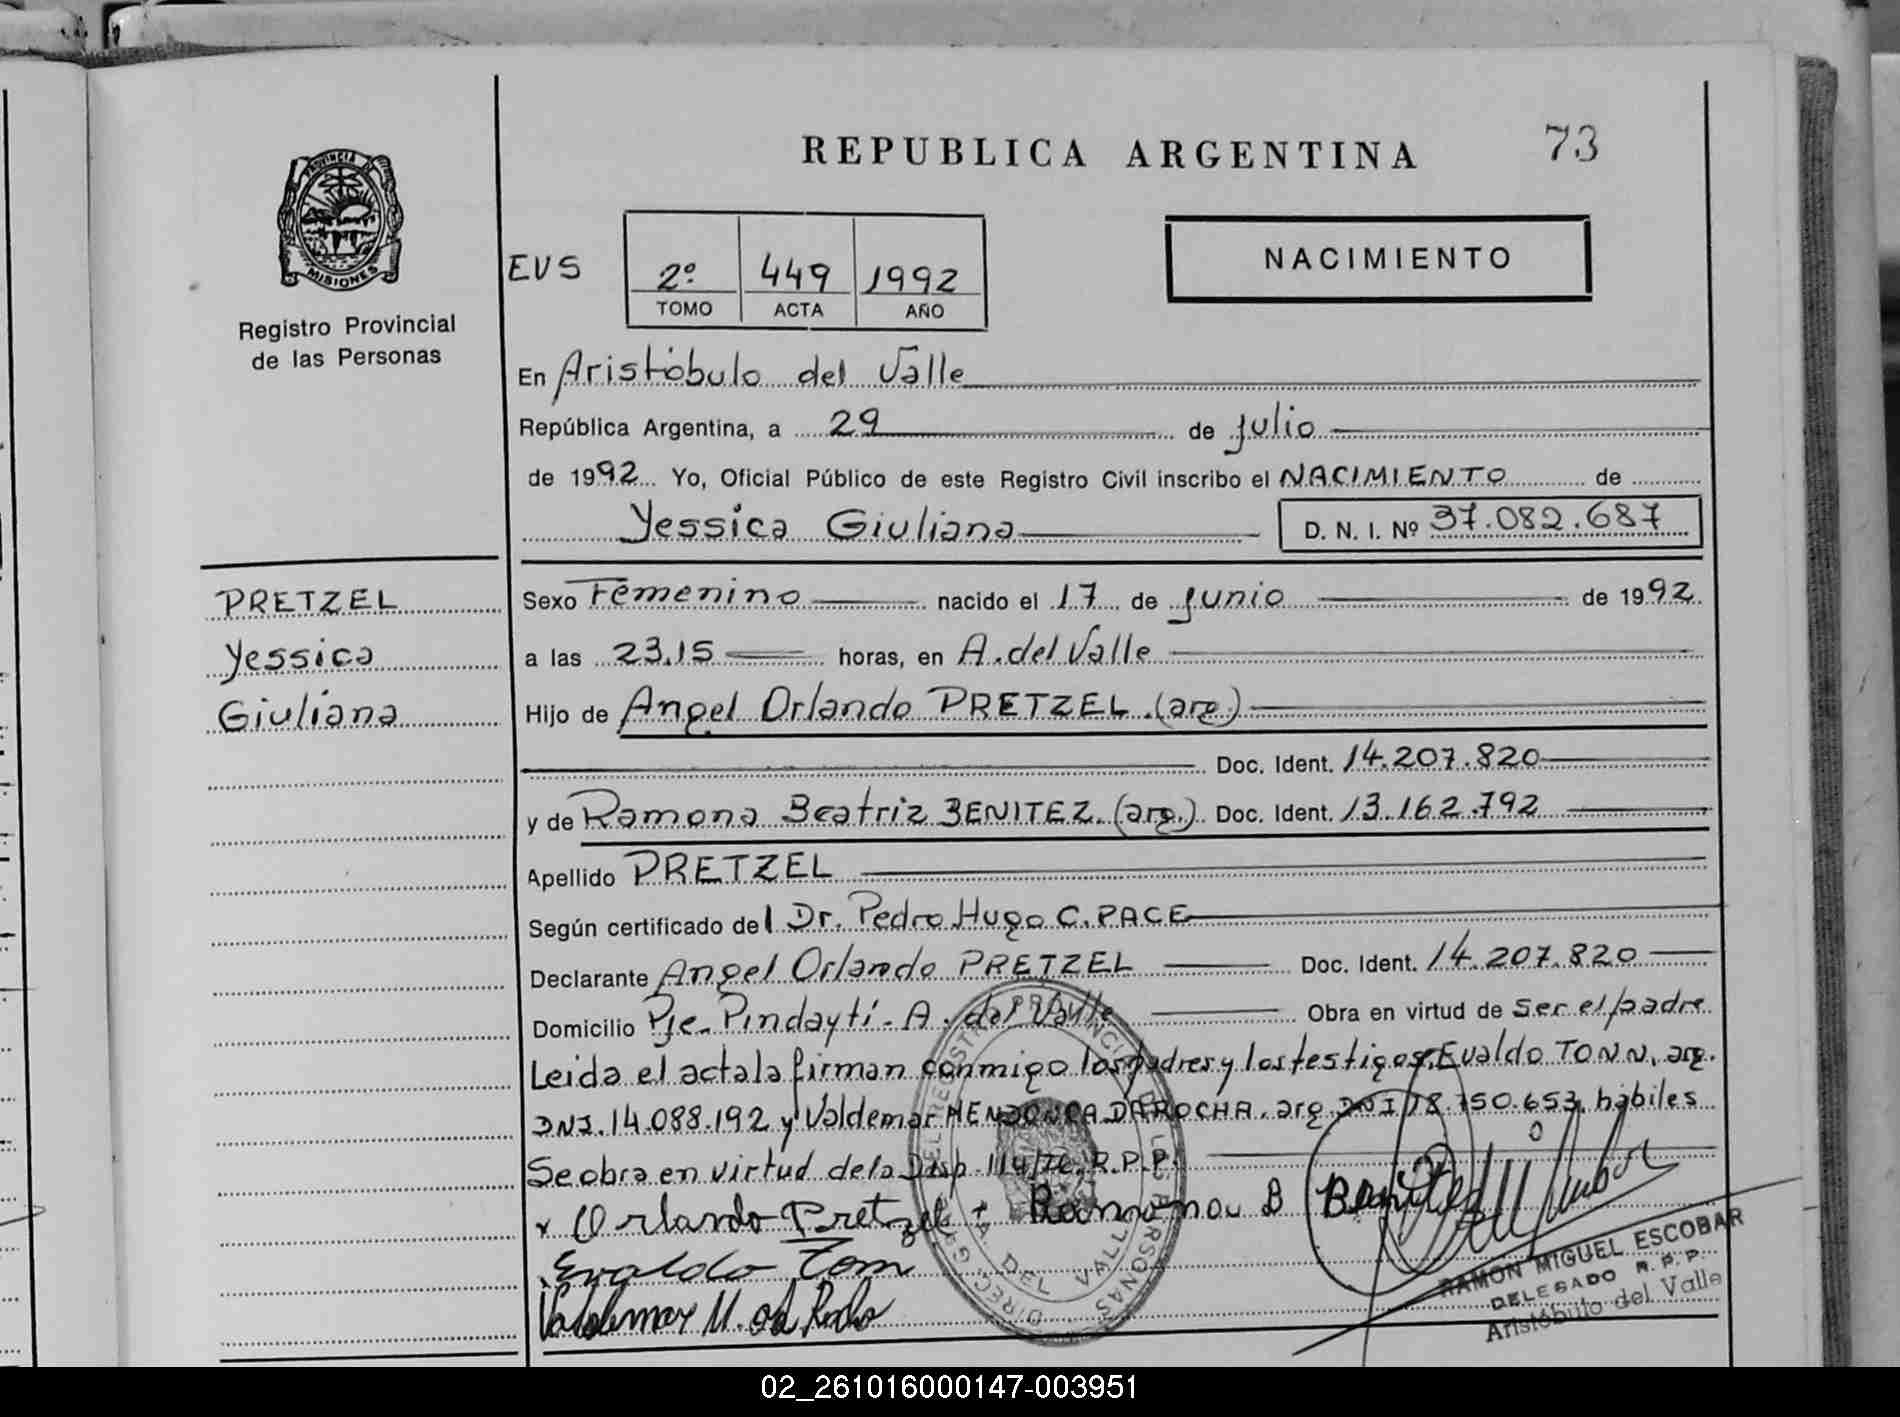 REPUBLICA ARGENTINA
73
PROVINCIA DE MISIONES
Registro Provincial
de las Personas
EVS
2º 449 1992
TOMO ACTA AÑO
NACIMIENTO
En Aristóbulo del Valle
República Argentina, a 29 de Julio
de 1992 Yo, Oficial Público de este Registro Civil inscribo el NACIMIENTO de
Yessica Giuliana D. N. I. Nº 37.082.687
PRETZEL
Yessica
Giuliana
Sexo Femenino nacido el 17 de Junio de 1992
a las 23.15 horas, en A. del Valle
Hijo de Angel Orlando PRETZEL (arg)
Doc. Ident. 14.207.820
y de Ramona Beatriz BENITEZ. (arg.) Doc. Ident. 13.162.792
Apellido PRETZEL
Según certificado del Dr. Pedro Hugo C. PACE
Declarante Angel Orlando PRETZEL Doc. Ident. 14.207.820
Domicilio Pje. Pindaytí - A. del Valle Obra en virtud de Ser el padre
Leida el acta la firman conmigo los padres y los testigos, Evaldo TONN, arg.
DNI. 14.088.192 y Valdemar MENDONCA DAROCHA. arg DNI 18.750.653, hábiles
Se obra en virtud de la Disp. 114/76. R.P.P.
x Orlando Pretzel + Ramona B Benitez
Evaldo Tom
Valdemar M. da Rocha
RAMON MIGUEL ESCOBAR
DELEGADO R.P.P.
Aristóbulo del Valle
02_261016000147-003951